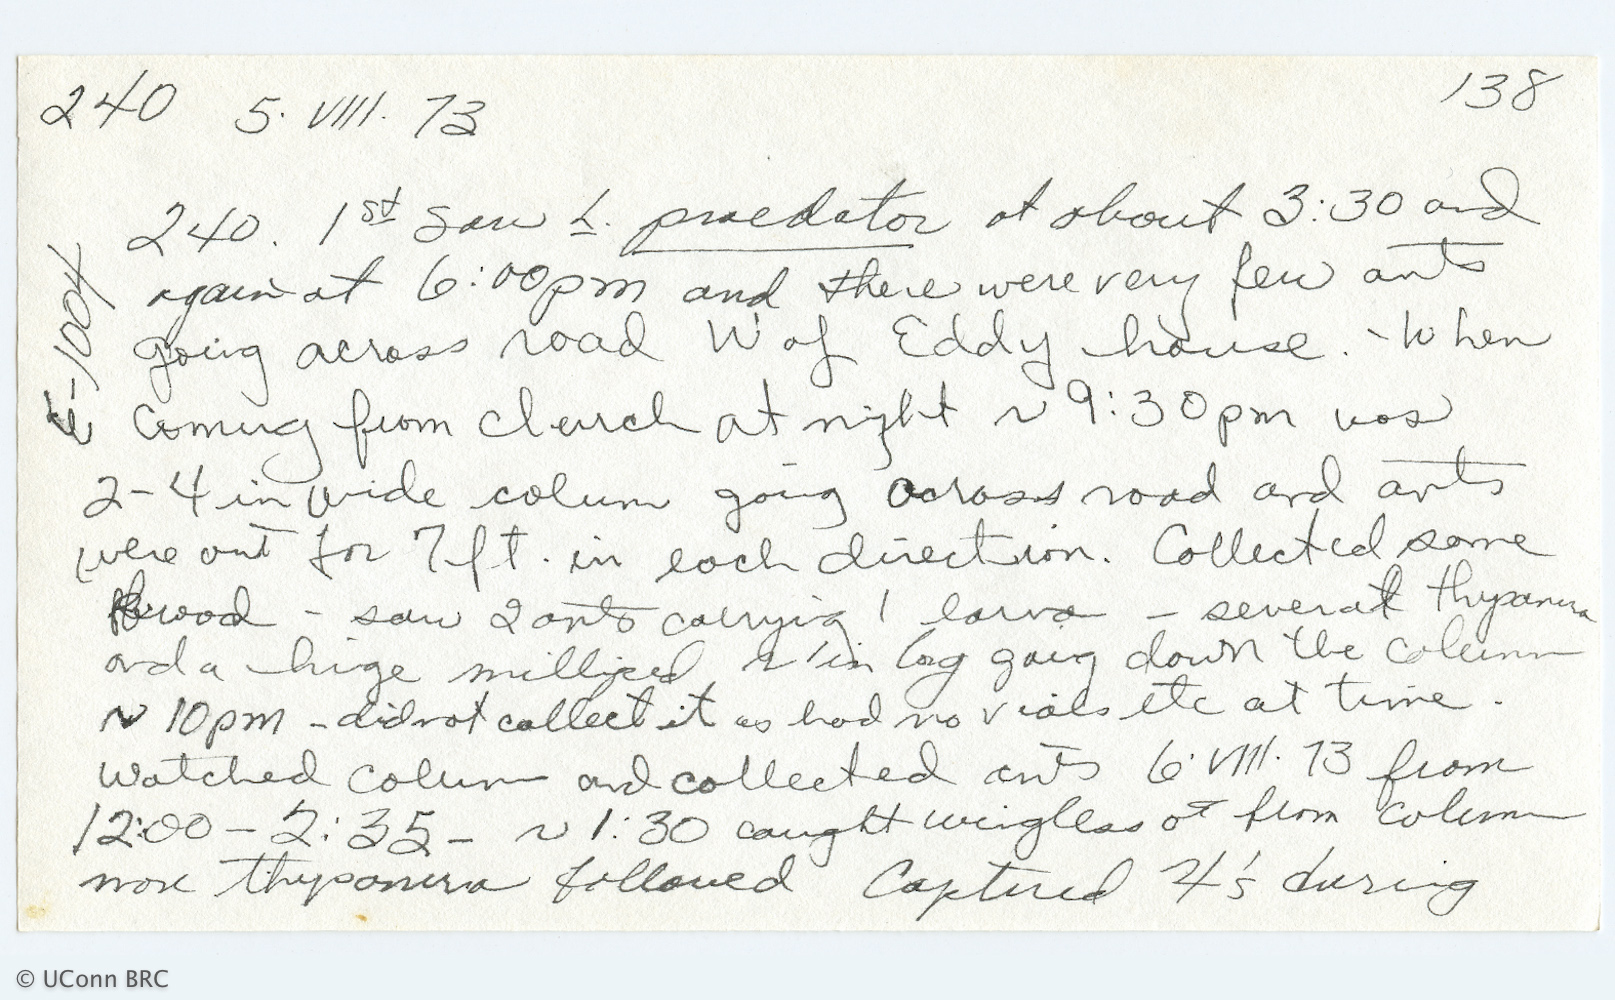 240 5. VIII. 73 138
240. 1st saw L. praedator at about 3:30 and
again at 6:00pm and there were very few ants
going across road W of Eddy house. - When
E-1004
coming from church at night ~ 9:30pm was
2-4 in wide column going across road and ants
were out for 7 ft. in each direction. Collected some
Brood - saw 2 ants carrying 1 larva - several thysanura
and a huge milliped ~ 1 in long going down the column
~ 10pm - did not collect it as had no vials etc at time.
Watched column and collected ants 6. VIII. 73 from
12:00 - 2:35 - ~ 1:30 caught wingless ♂ from column
more thysanura followed Captured 4's during
© UConn BRC